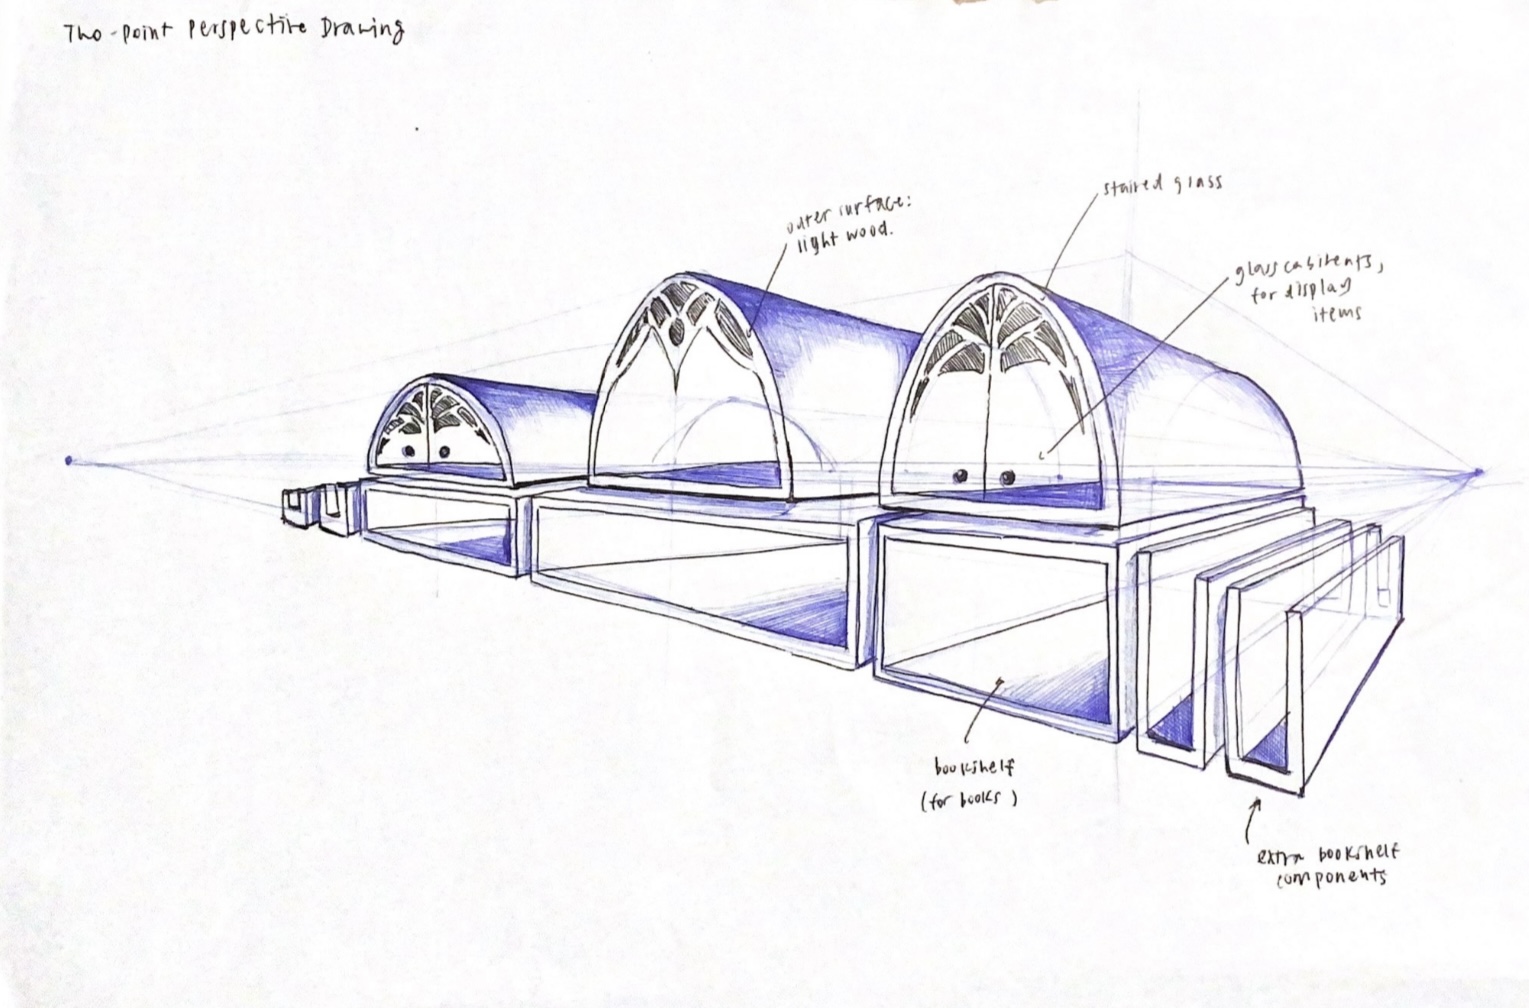 Two-point Perspective Drawing
stained glass
outer surface:
light wood.
glass cabinents,
for display
items
bookshelf
(for books)
extra bookshelf
components